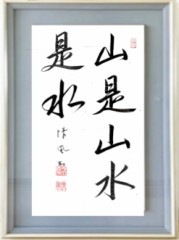 山是山水
是水